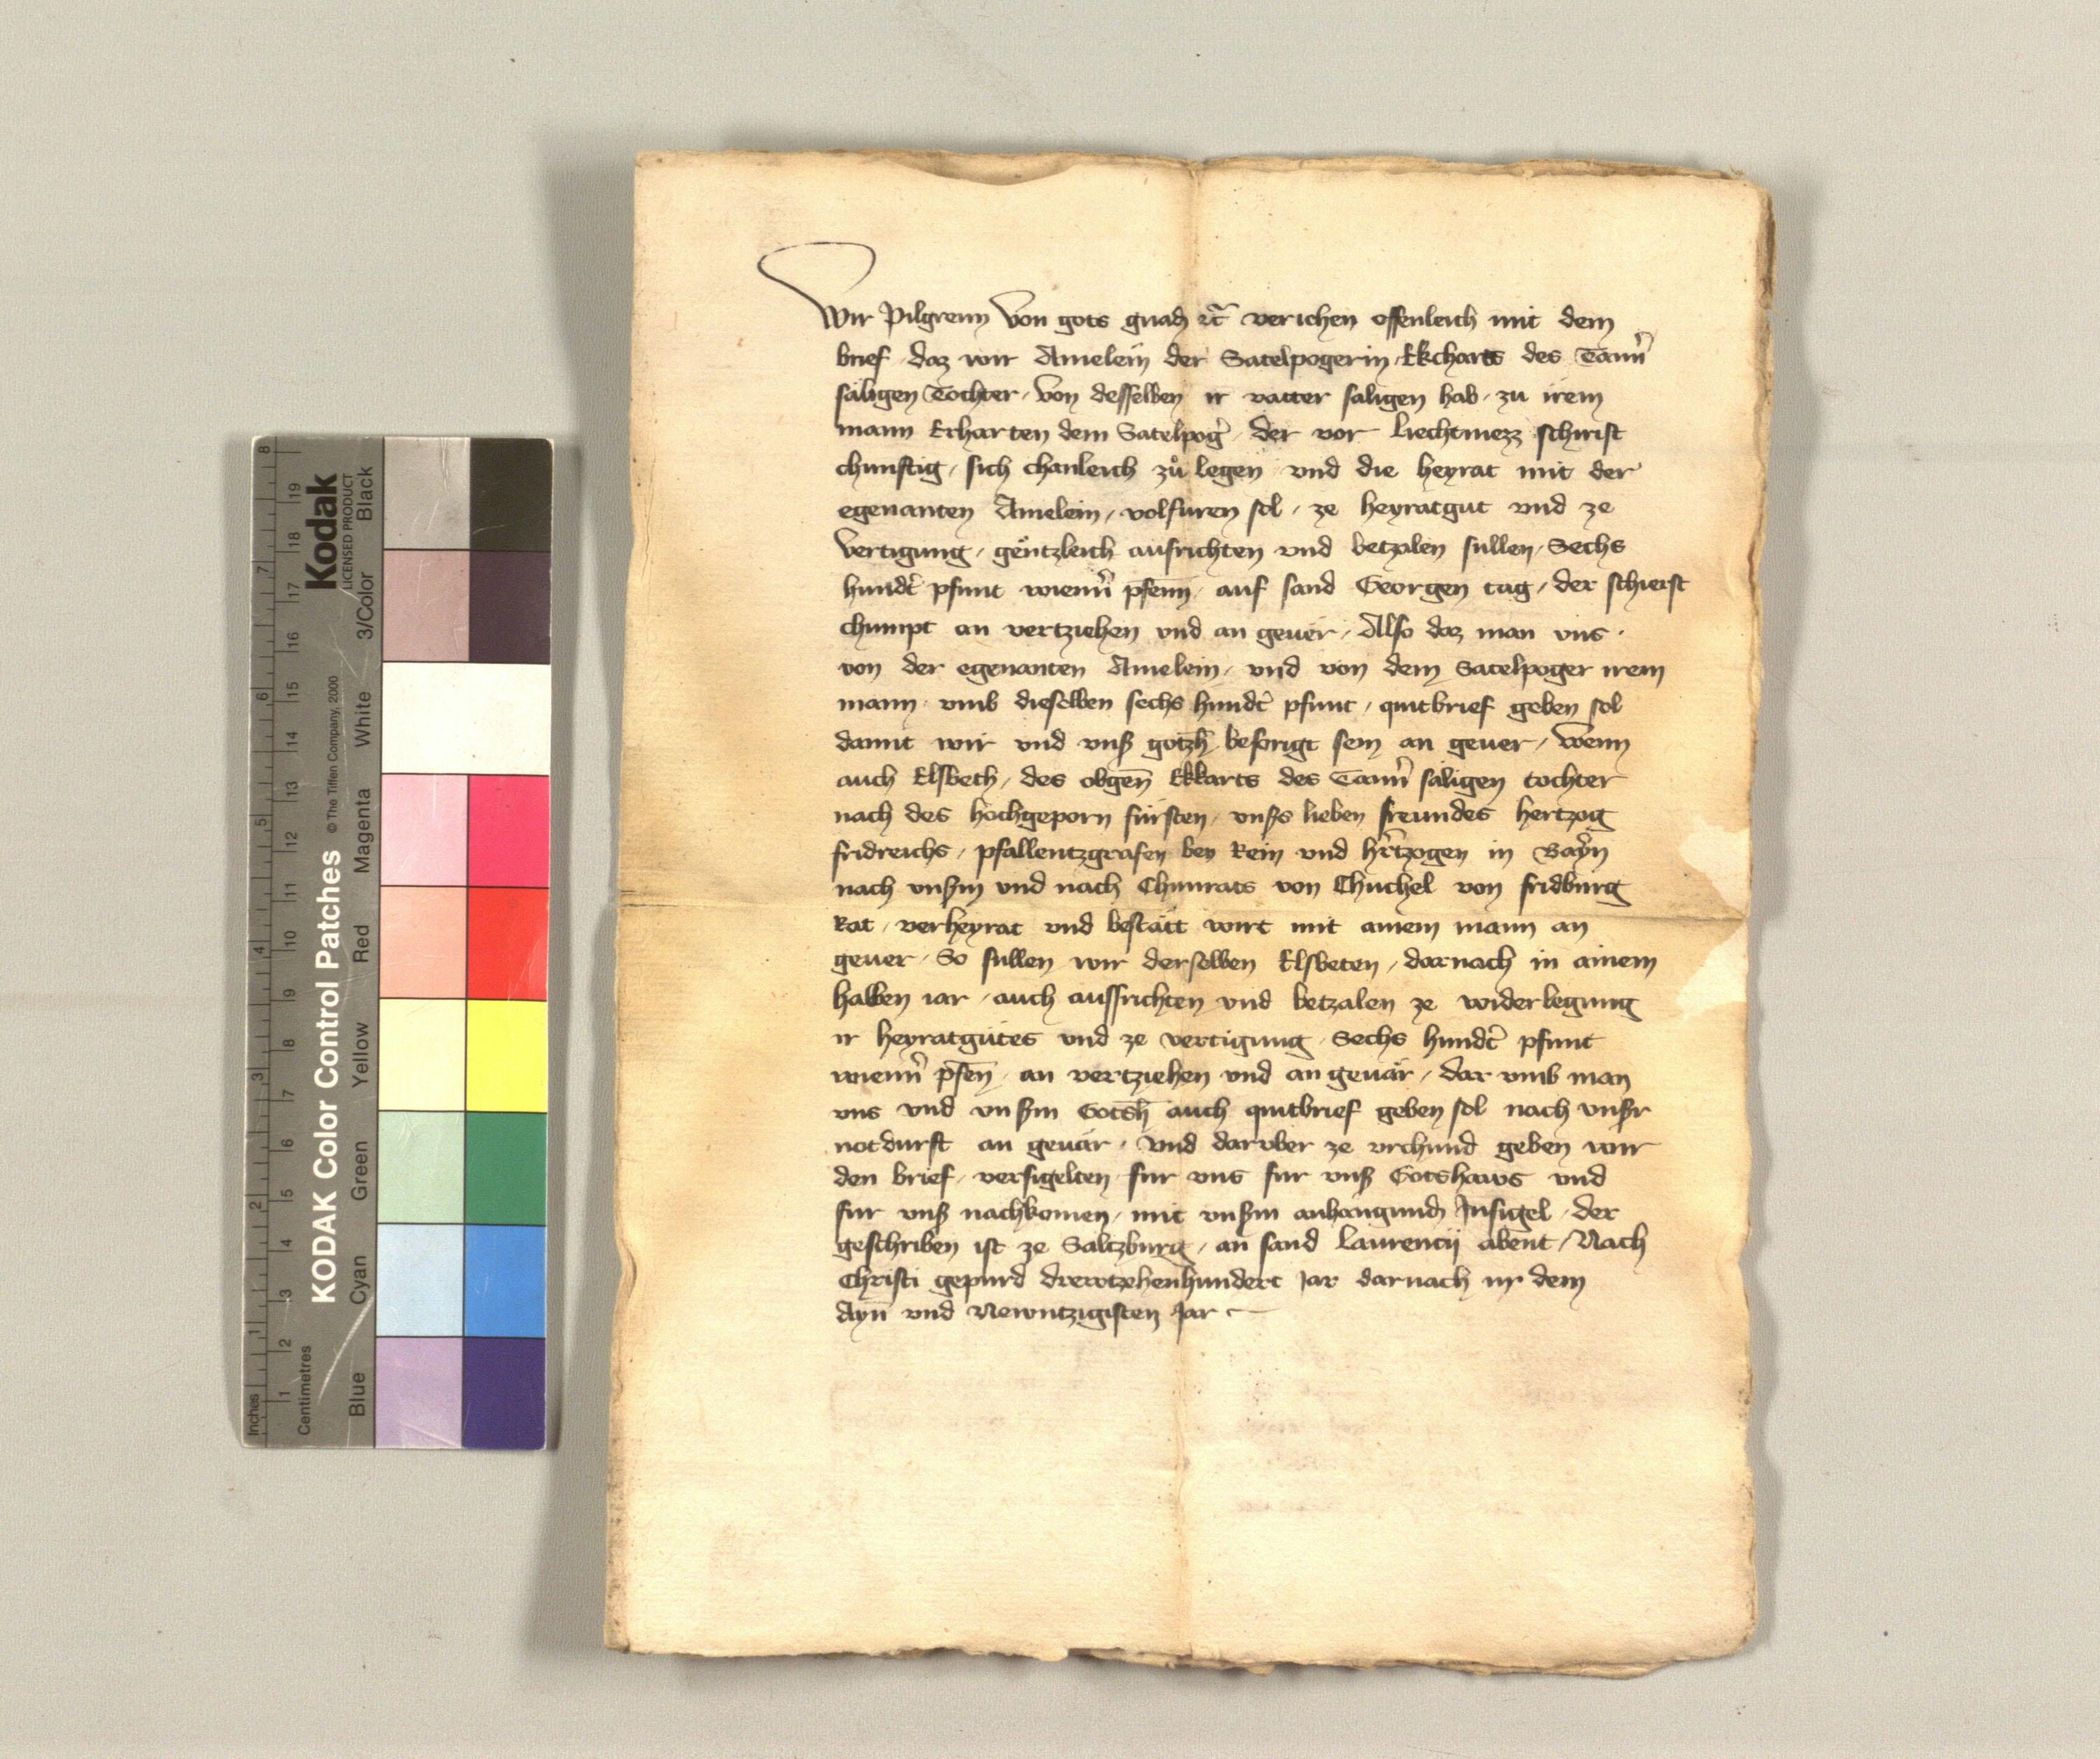 Wir Pilgreim von gots gnadn etc̃ verichen offenleich mit dem
brief daz wir Amelein der Satelpogerin, Ekcharts des Tannˀ
säligen Tochter, von desselben ir vatter säligen hab, zu irem
mann Erharten dem Satelpogˀ, der vor Liechtmezz schirist
chunftig, sich chanleich zů legen vnd die heyrat mit der
egenanten Amelein, volfuren sol, ze heyratgut vnd ze
vertigung, gentzleich ausrichten vnd betzalen sullen, Sechs
hundˀt pfunt wiennˀ pfenn, auf sand Georgen tag, der schierst
chumpt an vertziehen vnd an geuer, Also daz man vns
von der egenanten Amelein, vnd von dem Satelpoger irem
mann, vmb dieselben sechs hundˀt pfunt, quitbrief geben sol
damit wir vnd vnsß gotzh̄ besorigt sein an geuer, Wenn
auch Elsbeth, des obgen̄ Ekkarts des Tannˀ säligen tochter
nach des hochgeporn fürsten, vnsßs lieben freundes hertzog
fridreichs, pfallentzgrafen ben Rein vnd hˀtzogen in Bayˀn
nach vnsßm vnd nach Chunrats von Chuchel von fridburg
Rat, verheyrat vnd bestätt wirt mit ainem mann an
geuer, So sullen wir derselben Elsbeten, darnach in ainem
halben iar, auch aussrichten vnd betzalen ze widerlegung
ir heyratgutes vnd ze vertigung, Sechs hundˀt pfunt
wiennˀ pfen̄, an vertziehen vnd an geuär, dar vmb man
vns vnd vnsßm Gotsh̄ auch quitbrief geben sol nach vnsßr
notdurft an geuär, vnd darvber ze vrchund geben wir
den brief, versigelten fur vns fur vnsß Gotshaws vnd
fur vnsß nachkomen, mit vnsßm anhangundn Insigel, der
geschriben ist ze Saltzburg, an sand Laurencij abent, Nach
Christi gepurd drewtzehenhundert Jar darnach in dem
Ayn̄ vnd Newntzigisten Jar
Kodak
LICENSED PRODUCT
KODAK Color Control Patches © The Tiffen Company, 2000
Blue Cyan Green Yellow Red Magenta White 3/Color Black
Inches 1 2 3 4 5 6 7 8
Centimetres 1 2 3 4 5 6 7 8 9 10 11 12 13 14 15 16 17 18 19